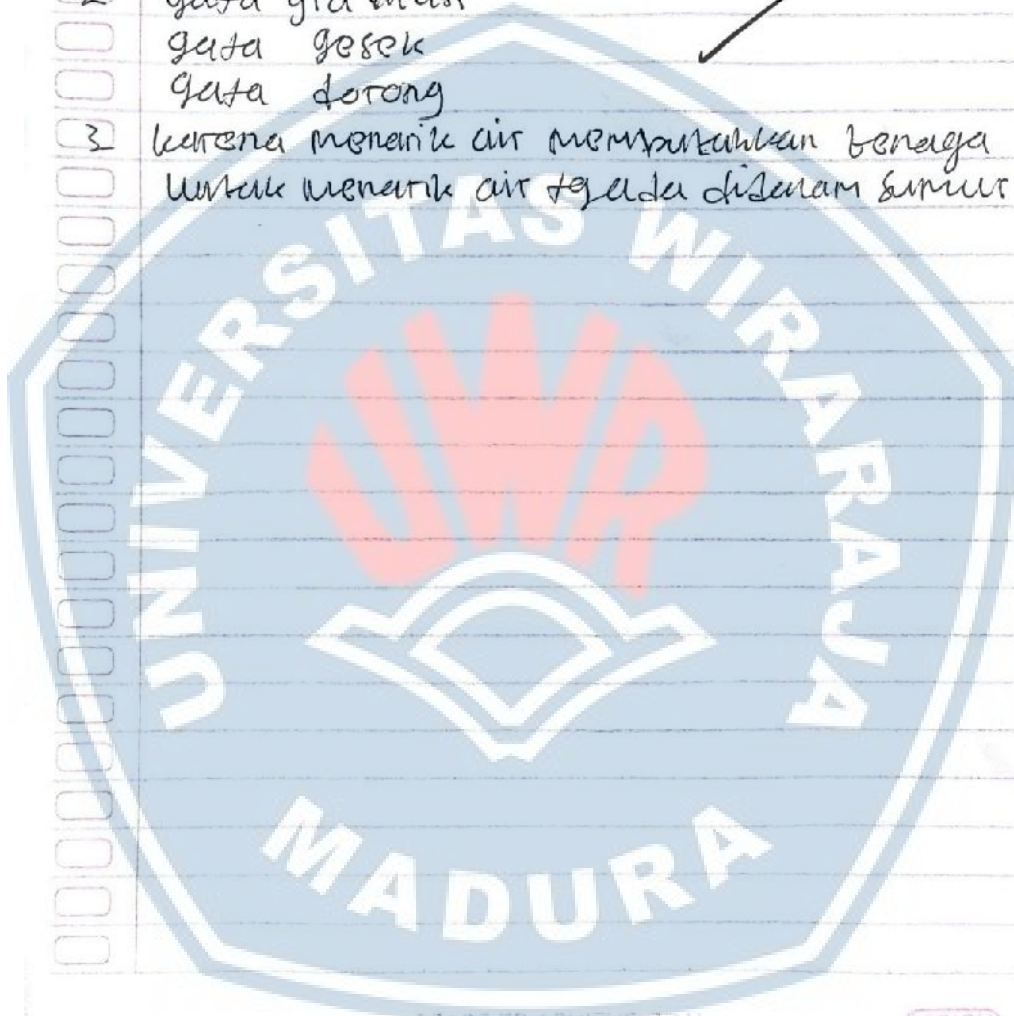 2 gaya gravitasi
gaya gesek
gaya dorong
3 karena menarik air membutuhkan tenaga
untuk menarik air yg ada didalam sumur
UNIVERSITAS WIRARAJA
UWR
MADURA